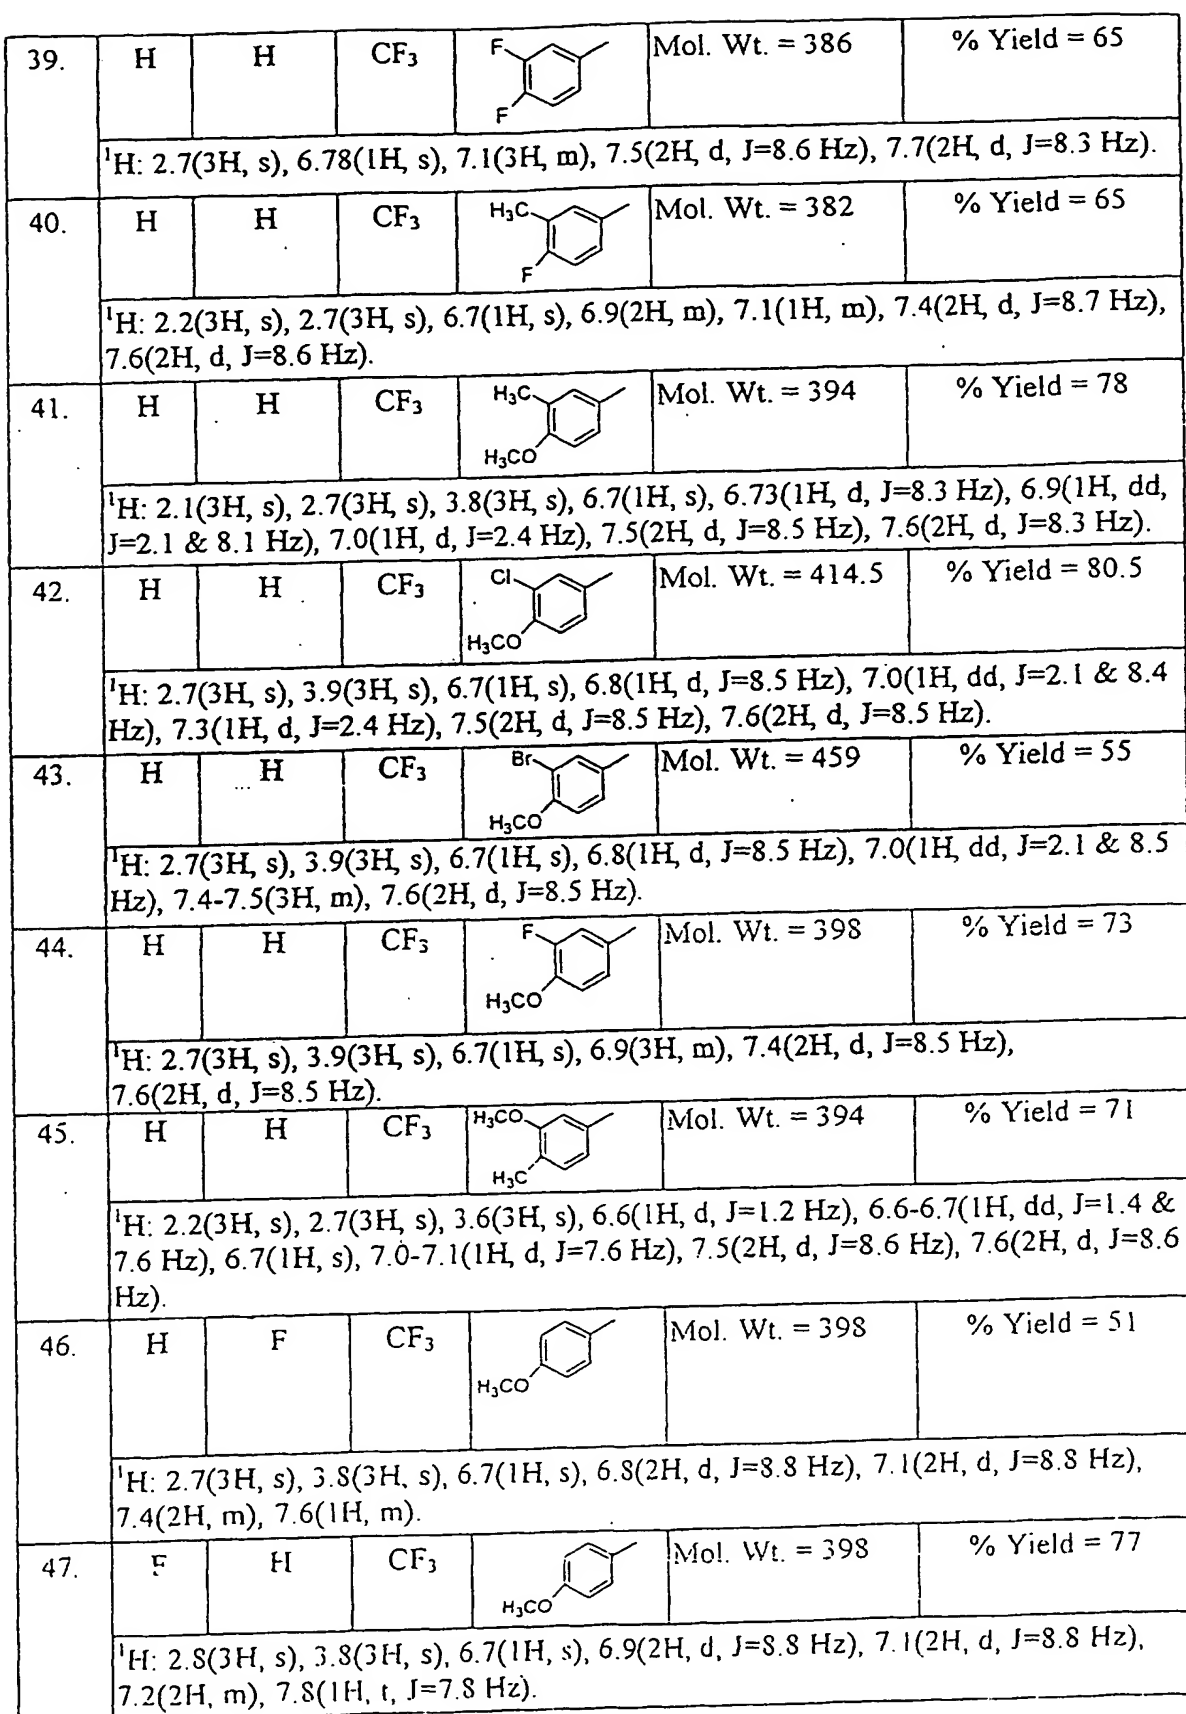 39. H H CF₃ F F Mol. Wt. = 386 % Yield = 65
¹H: 2.7(3H, s), 6.78(1H, s), 7.1(3H, m), 7.5(2H, d, J=8.6 Hz), 7.7(2H, d, J=8.3 Hz).
40. H H CF₃ H₃C F Mol. Wt. = 382 % Yield = 65
¹H: 2.2(3H, s), 2.7(3H, s), 6.7(1H, s), 6.9(2H, m), 7.1(1H, m), 7.4(2H, d, J=8.7 Hz),
7.6(2H, d, J=8.6 Hz).
41. H H CF₃ H₃C H₃CO Mol. Wt. = 394 % Yield = 78
¹H: 2.1(3H, s), 2.7(3H, s), 3.8(3H, s), 6.7(1H, s), 6.73(1H, d, J=8.3 Hz), 6.9(1H, dd,
J=2.1 & 8.1 Hz), 7.0(1H, d, J=2.4 Hz), 7.5(2H, d, J=8.5 Hz), 7.6(2H, d, J=8.3 Hz).
42. H H CF₃ Cl H₃CO Mol. Wt. = 414.5 % Yield = 80.5
¹H: 2.7(3H, s), 3.9(3H, s), 6.7(1H, s), 6.8(1H, d, J=8.5 Hz), 7.0(1H, dd, J=2.1 & 8.4
Hz), 7.3(1H, d, J=2.4 Hz), 7.5(2H, d, J=8.5 Hz), 7.6(2H, d, J=8.5 Hz).
43. H H CF₃ Br H₃CO Mol. Wt. = 459 % Yield = 55
¹H: 2.7(3H, s), 3.9(3H, s), 6.7(1H, s), 6.8(1H, d, J=8.5 Hz), 7.0(1H, dd, J=2.1 & 8.5
Hz), 7.4-7.5(3H, m), 7.6(2H, d, J=8.5 Hz).
44. H H CF₃ F H₃CO Mol. Wt. = 398 % Yield = 73
¹H: 2.7(3H, s), 3.9(3H, s), 6.7(1H, s), 6.9(3H, m), 7.4(2H, d, J=8.5 Hz),
7.6(2H, d, J=8.5 Hz).
45. H H CF₃ H₃CO H₃C Mol. Wt. = 394 % Yield = 71
¹H: 2.2(3H, s), 2.7(3H, s), 3.6(3H, s), 6.6(1H, d, J=1.2 Hz), 6.6-6.7(1H, dd, J=1.4 &
7.6 Hz), 6.7(1H, s), 7.0-7.1(1H, d, J=7.6 Hz), 7.5(2H, d, J=8.6 Hz), 7.6(2H, d, J=8.6
Hz).
46. H F CF₃ H₃CO Mol. Wt. = 398 % Yield = 51
¹H: 2.7(3H, s), 3.8(3H, s), 6.7(1H, s), 6.8(2H, d, J=8.8 Hz), 7.1(2H, d, J=8.8 Hz),
7.4(2H, m), 7.6(1H, m).
47. F H CF₃ H₃CO Mol. Wt. = 398 % Yield = 77
¹H: 2.8(3H, s), 3.8(3H, s), 6.7(1H, s), 6.9(2H, d, J=8.8 Hz), 7.1(2H, d, J=8.8 Hz),
7.2(2H, m), 7.8(1H, t, J=7.8 Hz).